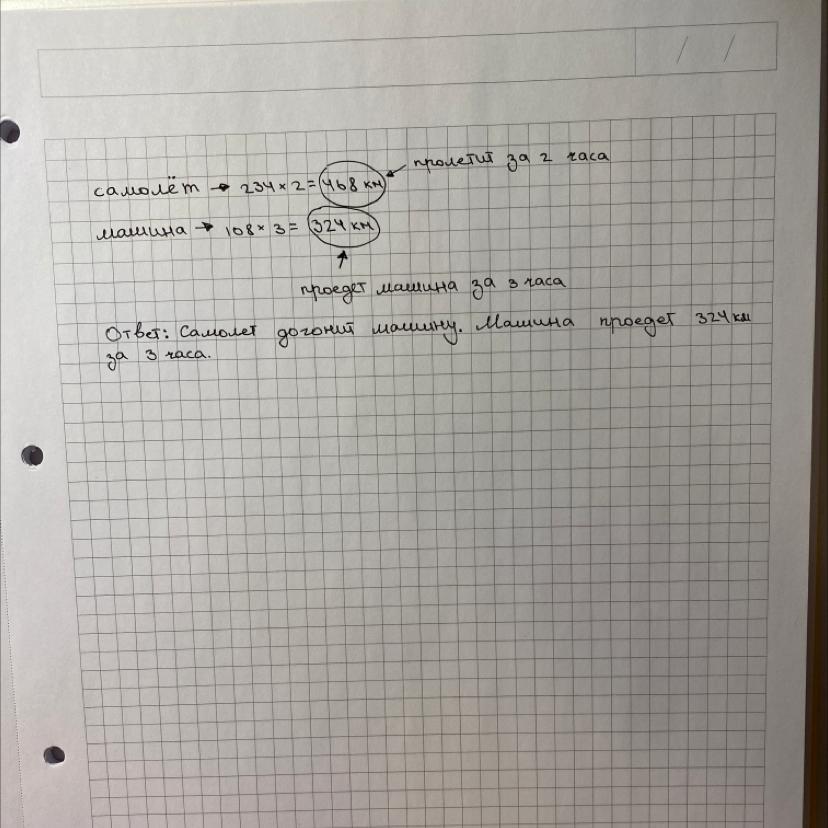 / /
самолёт → 234 × 2 = 468 км ← пролетит за 2 часа
машина → 108 × 3 = 324 км
↑
проедет машина за 3 часа
Ответ: Самолет догонит машину. Машина проедет 324 км
за 3 часа.